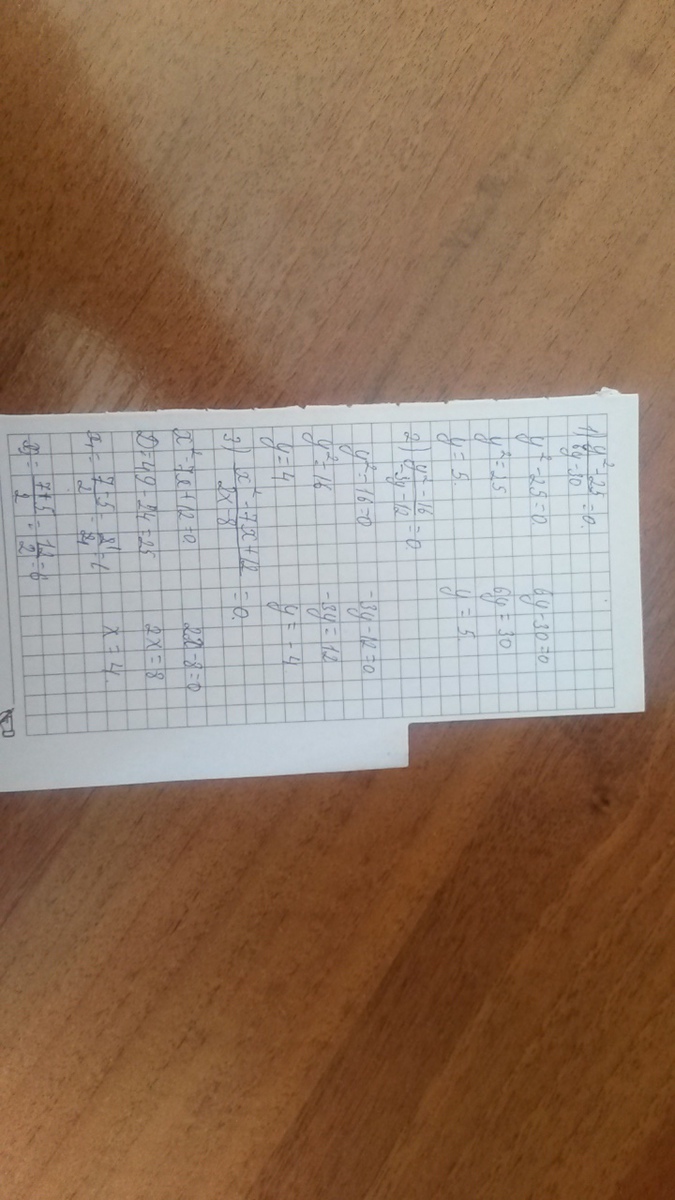 1) y² - 25 / 6y - 30 = 0.
y² - 25 = 0 6y - 30 = 0
y² = 25 6y = 30
y = 5. y = 5.
2) y² - 16 / -3y - 12 = 0
y² - 16 = 0 -3y - 12 = 0
y² = 16 -3y = 12
y = 4 y = -4
3) x² - 7x + 12 / 2x - 8 = 0.
x² - 7x + 12 = 0 2x - 8 = 0
D = 49 - 24 = 25 2x = 8
x₁ = 7 - 5 / 2 = x = 4.
x = 7 + 5 / 2 = 12 / 2 = 6